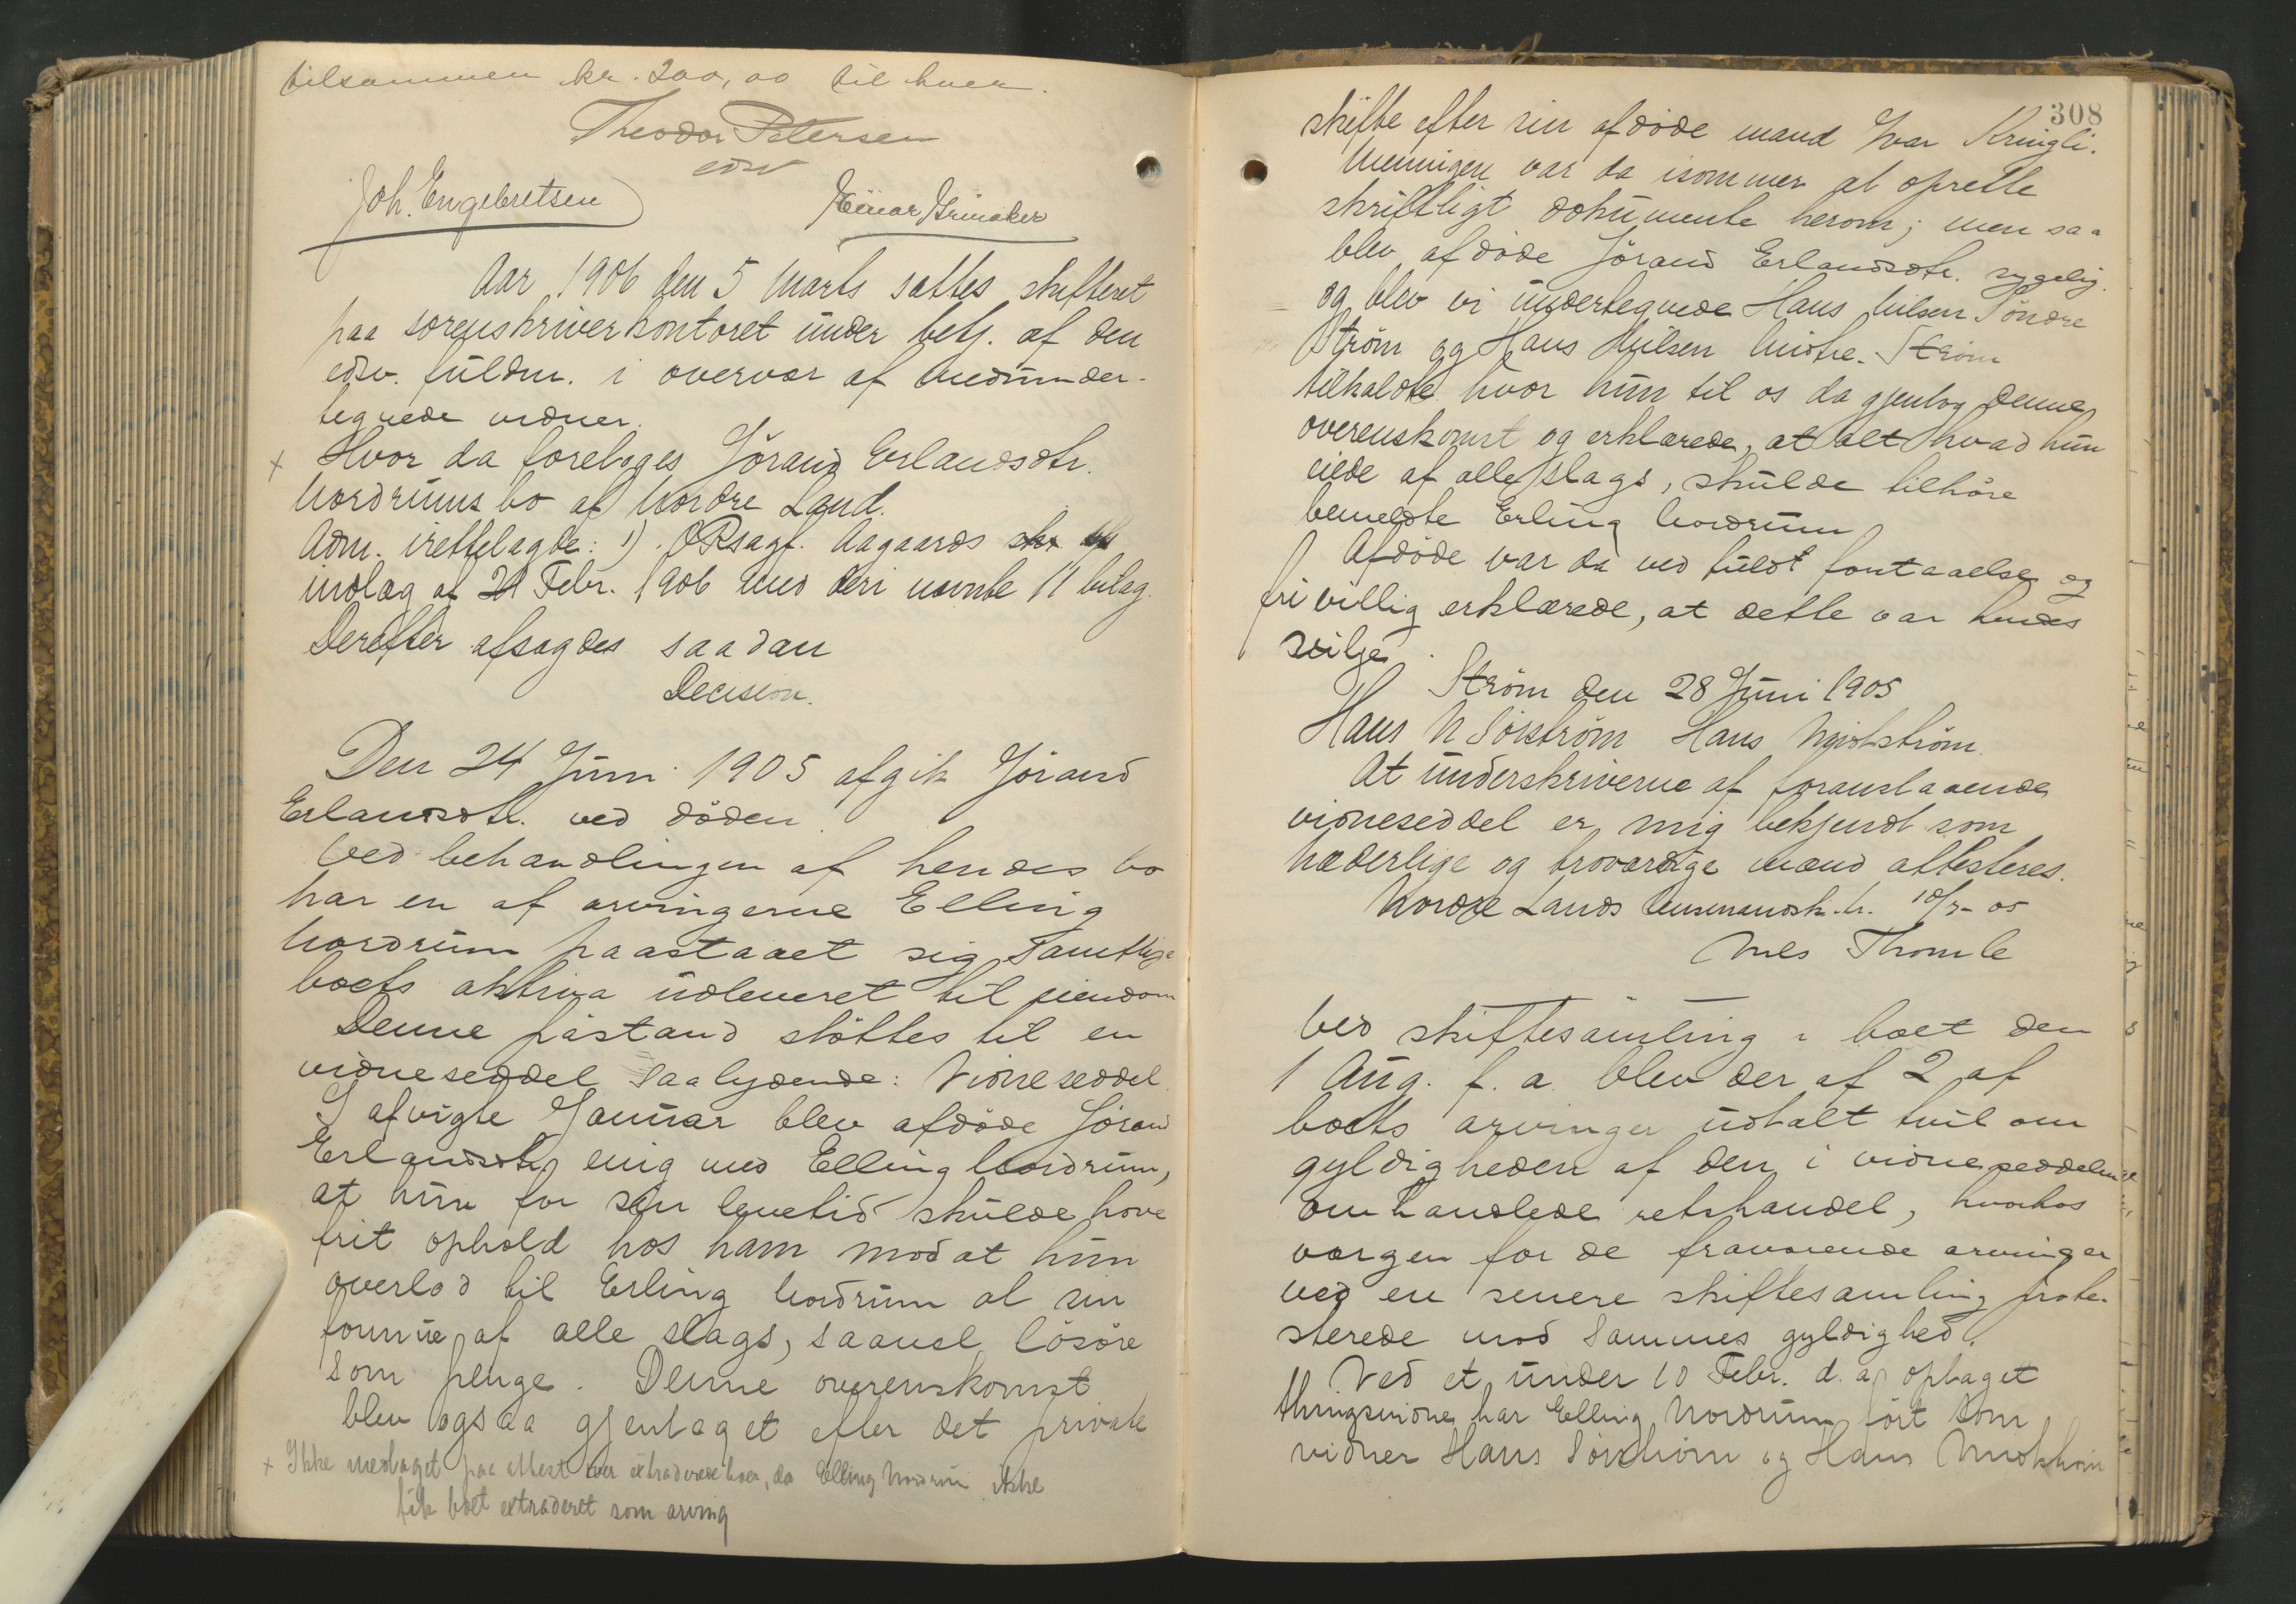 tilsammen kr. 200,00 til hver.
Theodor Petersen
edsv
Joh. Engebretsen Einar Grinaker
Aar 1906 den 5 Marts sattes skifteret
paa sorenskriverkontoret under bety. af den
edsv. fuldm. i overvær af medunder-
tegnede vidner.
+ Hvor da foretoges Jörand Erlandsdtr.
Nordrums bo af Nordre Land.
Adm. irettelagde: 1) ORsagf. Aagaards
indlæg af 21 Febr. 1906 med deri nævnte 11 bilag.
Derefter afsagdes saadan
Decision.
Den 24 Juni 1905 afgik Jörand
Erlandsdtr. ved döden.
Ved behandlingen af hendes bo
har en af arvingerne Elling
Nordrum paastaaet sig samtlige
boets aktiva udleveret til eiendom
Denne påstand stöttes til en
vidneseddel saalydende: Vidneseddel.
I afvigte Januar blev afdöde Jörand
Erlandsdtr enig med Elling Nordrum,
at hun for sin levetid skulde have
frit ophold hos ham mod at hun
overlod til Erling Nordrum al sin
formue af alle slags, saavel lösöre
som penge. Denne overenskomst
blev ogsaa gjentaget efter det private
+ Ikke medtaget paa attest over extraderede boer, da Elling Nordrum ikke
fik boet extraderet som arving
308
skifte efter sin afdöde mand Ivar Kringli.
Meningen var da isommer at oprette
skriftligt dokumente herom; men saa
blev afdöde Jörand Erlandsdtr. sygelig.
og blev vi undertegnede Hans Nilsen Söndre
Ström og Hans Nilsen Midtre Ström
tilkaldte hvor hun til os da gjentog denne
overenskomst og erklærede, at alt hvad hun
eiede af alle slags, skulde tilhöre
bemeldte Erling Nordrum
Afdöde var da ved fuldt forstaaelse og
frivillig erklærede, at dette var hendes
vilje.
Ström den 28 Juni 1905
Hans N Sörström Hans Midtström.
At underskriverne af foranstaaende
vidneseddel er mig bekjendt som
hæderlige og troværdige mænd attesteres.
Nordre Lands Lensmandsk.tr. 10/7-05
Nils Thomle
Ved skiftesamling i boet den
1 Aug. f. a. blev der af 2 af
boets arvinger udtalt tvil om
gyldigheden af den i vidneseddelen
omhandlede retshandel, hvorhos
værgen for de fraværende arvinger
ved en senere skiftesamling prote-
sterede mod sammes gyldighed.
Ved et under 10 Febr. d. a. optaget
thingsvidne har Elling Nordrum fört som
vidner Hans Sörström og Hans Midtström